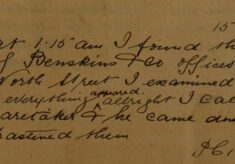 15
at 1-15 am I found th
Benskins & co offices
North Street I examined
everything appeared allright I cal
caretaker & he came down
fastened them
PC1